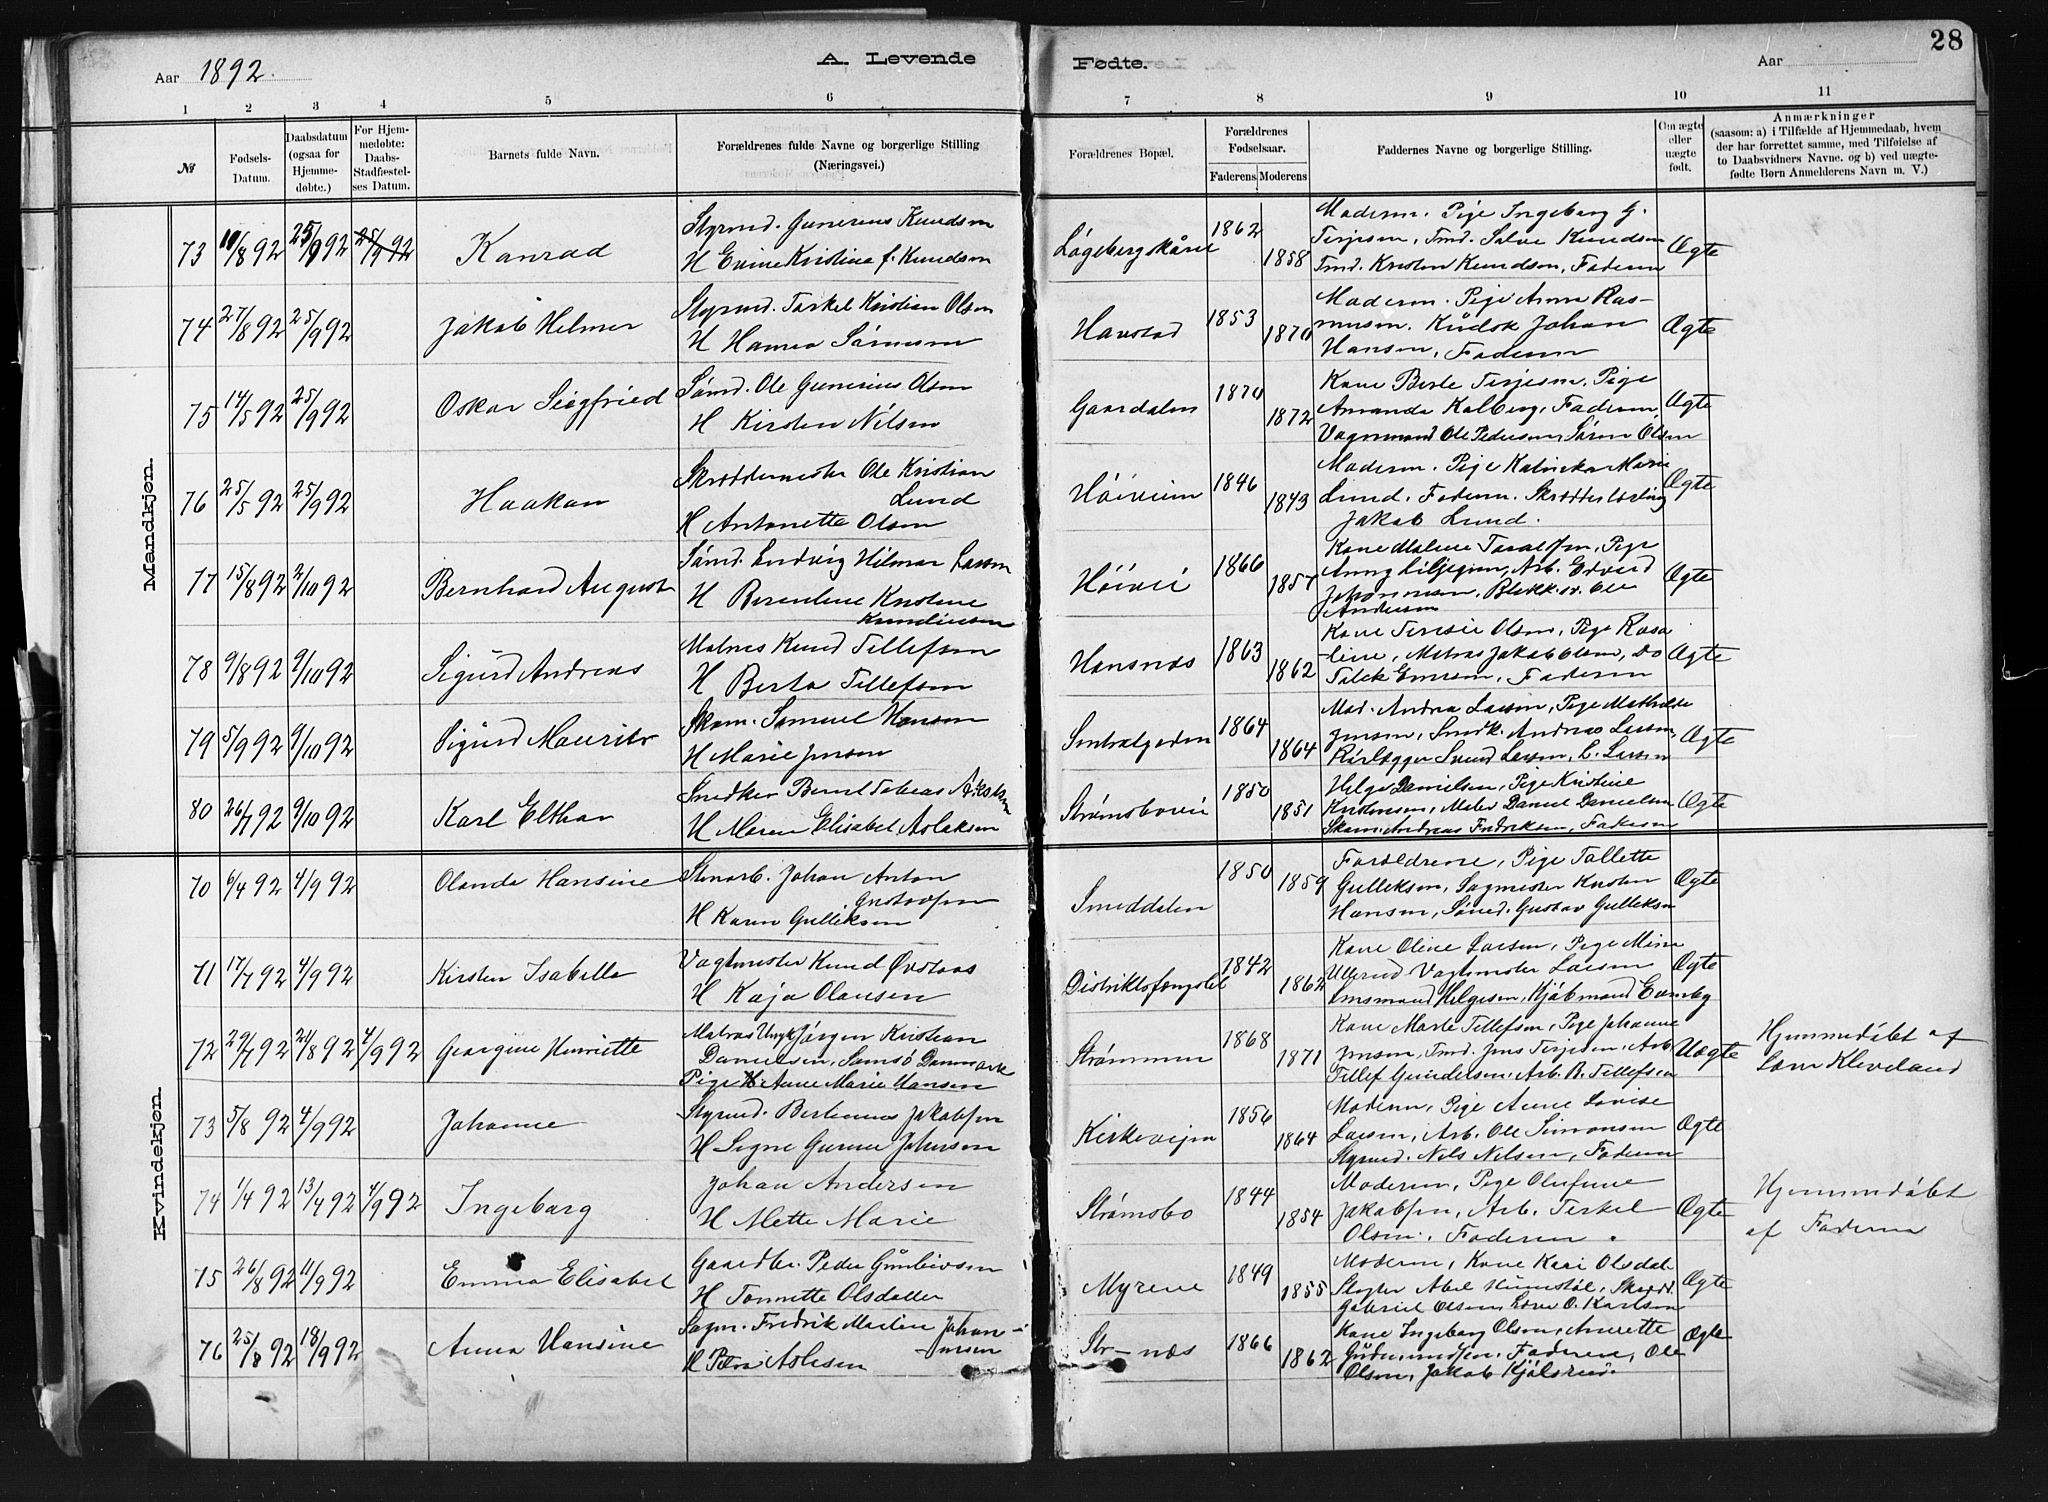 28
Aar 1892.
A. Levende
Fødte.
Aar
1
2
3
4
5
6
7
8
9
10
11
№
Fødsels-
Datum.
Daabsdatum
(ogsaa for
Hjemme-
døbte.)
For Hjem-
medøbte:
Daabs-
Stadfæstel-
ses Datum.
Barnets fulde Navn.
Forældrenes fulde Navne og borgerlige Stilling
(Næringsvei.)
Forældrenes Bopæl.
Forældrenes
Fødselsaar.
Faderens Moderens
Faddernes Navne og borgerlige Stilling.
Om ægte
eller
uægte
født.
Anmærkninger
(saasom: a) i Tilfælde af Hjemmedaab, hvem
der har forrettet samme, med Tilføielse af
to Daabsvidners Navne. og b) ved uægte-
fødte Børn Anmelderens Navn m. V.)
Mandkjøn.
73 /8 92 25/9 92 25/9 92 Konrad
Styrmd. Gunerius Knudsen
H Kristine f. Knudsen
1862 1858
Moderen. Pige Ingeborg G.
Terjesen, Tmd. Salve Knudsen
Tmd. Kristen Knudsen, Faderen
Ægte
74 27/8 92 25/9 92 Jakob Hilmer
Styrmd. Terkel Kristian Olsen
H Hanna Sørensen
Havstad 1853 1870
Moderen. Pige Anna Ras-
musen. Johan
Hansen, Faderen
Ægte
75 14/5 92 25/9 92 Oskar Siegfried
Sømd. Ole Gunerius Olsen
H Kirsten Nilsen
Gaardalen 1870 1872
Kone Berte Terjesen, Pige
Amanda Kalberg, Faderen,
Vognmand Ole Pedersen, Søren Olsen
Ægte
76 25/5 92 25/9 92 Haakon
Skræddermester Ole Kristian
Lund
H Antonette Olsen
Höiveien 1846 1843
Moderen. Pige Katinka Marie
Lund. Faderen. Skrædderlærling
Jakob Lund.
Ægte
77 15/8 92 2/10 92 Bernhard August
Sømd. Ludvig Hilmar Larsen
H Berentine Kristine
Höivei 1866 1857
Kone Malene Taralfsen, Pige
Anny Arb. Edvard
Johannesen, Ole
Andersen
Ægte
78 9/8 92 9/10 92 Sigurd Andreas
Matros Knud Tellefsen
H Berta Tellefsen
Hansnæs 1863 1862
Kone Teresie Olsen, Pige Rosa-
line, Matros Jakob Olsen, Do
Faderen
Ægte
79 5/9 92 9/10 92 Sigurd Mauritz
Skom. Samuel Hansen
H Marie Jensen
1864 1864
Mod. Andrea Larsen, Pige Mathilde
Jensen, Smdk. Andreas Larsen,
Rørlægger Svend Larsen, L. Larsen
Ægte
80 26/7 92 9/10 92 Karl Elthor
Snedker Bernt Tobias
H Maren Elisabet Aslaksen
Strømsbovei 1850 1851
Helge Danielsen, Pige Kristine
Kristensen, Maler Daniel Danielsen
Skom. Andreas Fredriksen, Faderen
Ægte
Kvindekjøn.
70 6/4 92 4/9 92 Olanda Hansine
Stenarb. Johan Anton
Gustavsen
H Karen Gulleksen
Smeddalen 1850 1859
Forældrene, Pige Tallette
Gulleksen, Sagmester Kristen
Hansen, Sømd. Gustav Gulleksen
Ægte
71 17/7 92 4/9 92 Kirsten Isabella
Vagtmester Knud Øvstaas
H Kaja Olausen
Distriktsfængslet 1842 1862
Kone Oline Larsen, Pige Mina
Ullerud Vagtmester Larsen
Helgesen, Kjøbmand
Ægte
72 29/7 92 21/8 92 4/9 92 Georgine Henriette
Matros Ungk Jørgen Kristian
Danielsen, Samsö Danmark
Pige Anne Marie Hansen
Strømmen 1868 1871
Kone Marte Tellefsen, Pige Johanne
Jensen, Tmd. Jens Terjesen, Arb.
Tellef Gundersen, Arb. B. Tellefsen
Uægte
Hjemmedøbt af
Kleveland
73 5/8 92 4/9 92 Johanne
Styrmd. Bertinius Jakobsen
H Signe Gurine Johnsen
Kirkeveien 1856 1864
Moderen, Pige Anne Lovise
Larsen, Arb. Ole Simonsen
Styrmd. Nils Nilsen, Faderen
Ægte
74 1/4 92 13/4 92 4/9 92 Ingeborg
Johan Andersen
H Mette Marie
Strømsbo 1844 1854
Moderen, Pige Olufine
Jakobsen, Arb. Terkel
Olsen. Faderen
Ægte
Hjemmedøbt
af Faderen
75 26/8 92 11/9 92 Emma Elisabet
Gaardbr. Peder Gunleivsen
H Tonnette Olsdatter
Myrene 1849 1855
Moderen, Kone Kari Olsdat
Slagter Abel Skrædd.
Gabriel Olsen O. Karlsen
Ægte
76 25/8 92 18/9 92 Anna Hansine
Sagm. Fredrik Martin Johan-
nesen
H Petra Aslesen
Str-næs 1866 1862
Kone Ingeborg Olsen, Anrette
Gudmundsen, Faderen, Ole
Olsen, Jakob
Ægte